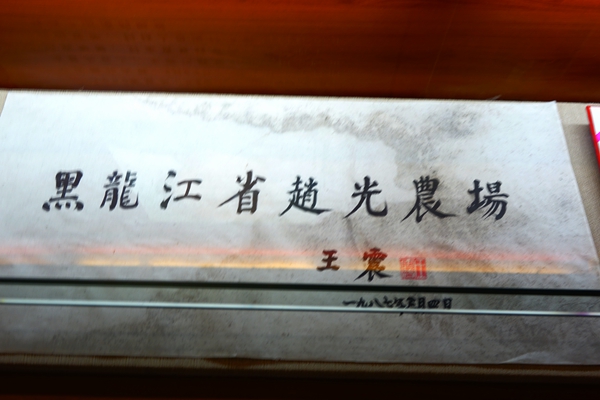 黑龍江省趙光農場
王震
一九八七年五月四日